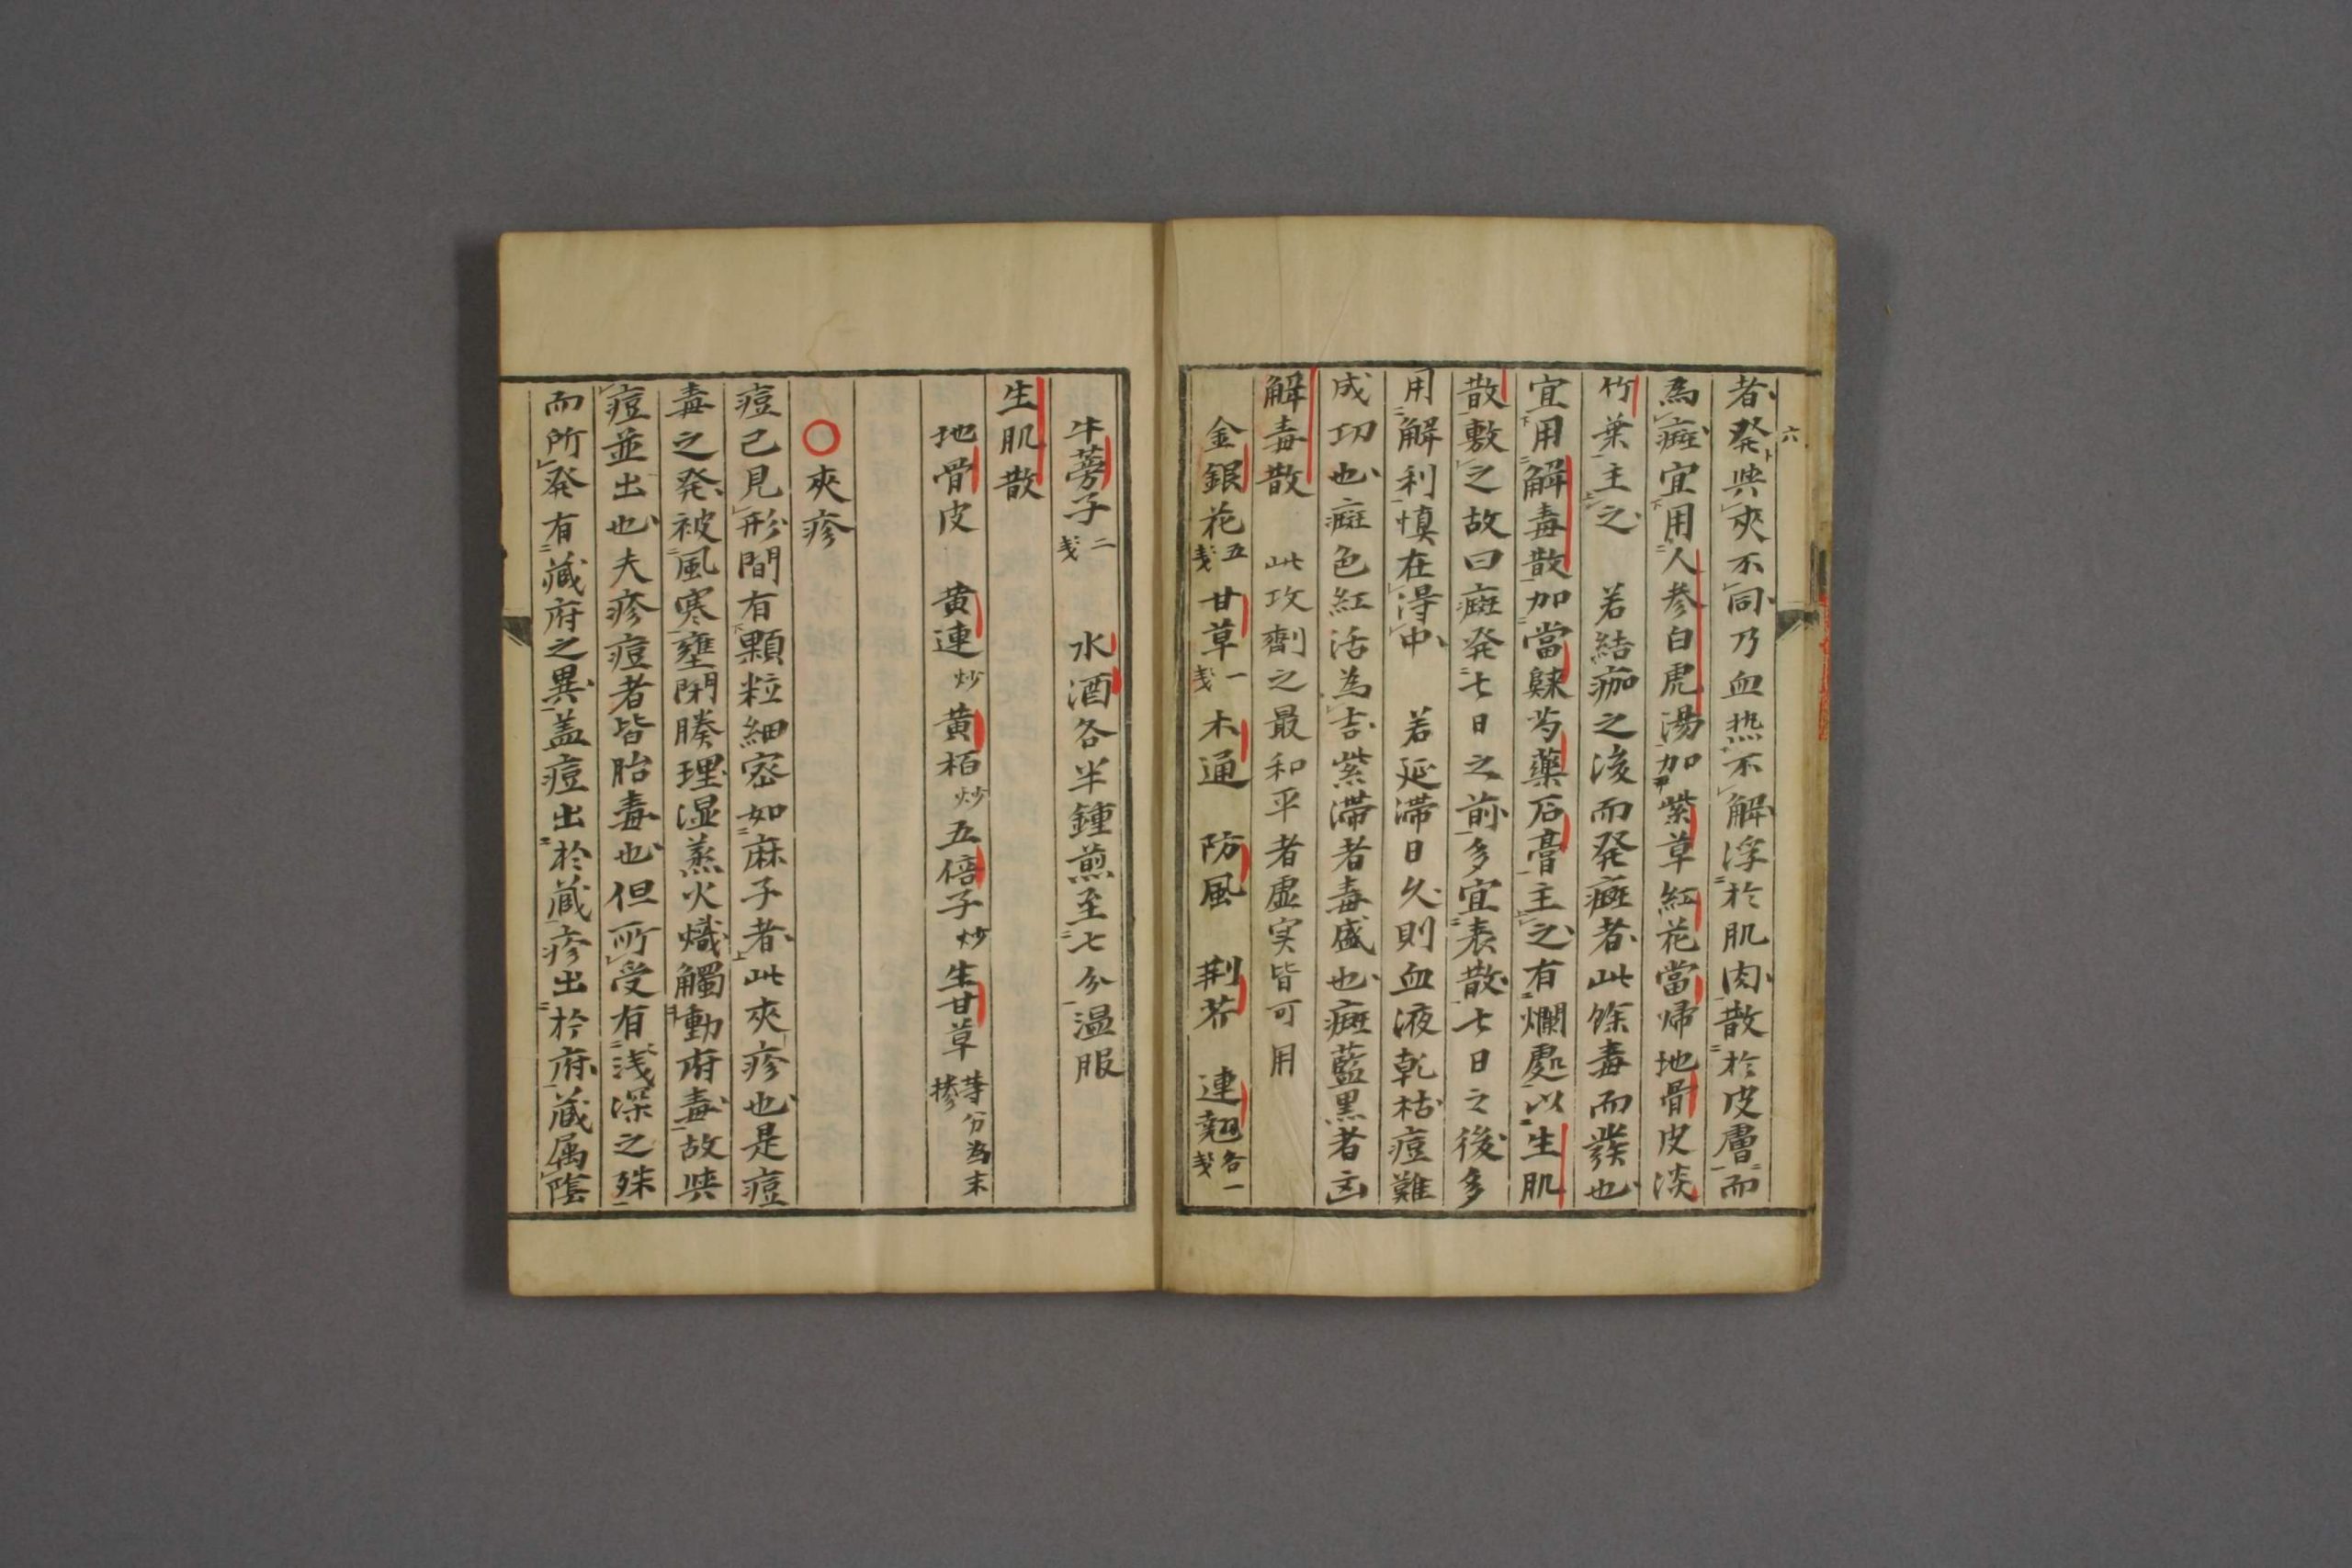 者発與夾不同乃血热不解浮於肌肉散於皮膚而
為癍宜用人参白虎湯加紫草紅花當帰地骨皮淡
竹葉主之　若結痂之後而発癍者此餘毒而發也
宜用解毒散加當歸芍藥石膏主之有爛處以生肌
散敷之故曰癍発七日之前多宜表散七日之後多
用解利慎在得中　若延滞日久則血液乾枯痘難
成功也癍色紅活為吉紫滞者毒盛也癍藍黒者凶
解毒散　此攻劑之最和平者虚実皆可用
金銀花五戔　甘草一戔　木通　防風　荆芥　連翹各一戔
牛蒡子二戔　水酒各半鍾煎至七分温服
生肌散
地骨皮　黄連炒　黄栢炒　五倍子炒　生甘草等分為末掺
○夾疹
痘已見形間有顆粒細宻如麻子者此夾疹也是痘
毒之発被風寒壅閉腠理湿蒸火熾觸動府毒故與
痘並出也夫疹痘者皆胎毒也但所受有浅深之殊
而所発有藏府之異盖痘出於藏疹出於府藏属陰
六